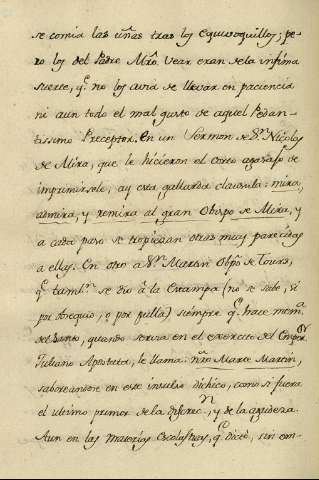 se comia las uñas tras los equivoquillos; pe-
ro los del Padre Mrô. Vear eran de la infima
suerte, q.e no los avia de llevar en paciencia
ni aun todo el mal gusto de aquel Pedan-
tissimo Preceptor. En un Sermon de Sn. Nicolas
de Mira, que le hicieron el corto agasajo de
imprimirsele, ay esta gallarda clausula: mira,
admira, y remira al gran Obispo de Mira, y
a cada paso se tropiezan otras muy parecidas
a ellas. En otro a Sn. Martin Obpô de Tours,
q.e tambn. se dio â la Estampa (no se sabe, si
por obsequio, o por pulla) siempre q.e hace mema.
del Santo, quando servia en el exercito del Emper.or
Juliano Apostata, le llama: nrô Marte Martin,
saboreandose en este insulso dichico, como si fuera
el ultimo primor de la discrecn., y de la agudeza.
Aun en las materias Escolasticas, q.e dictô, sin em-